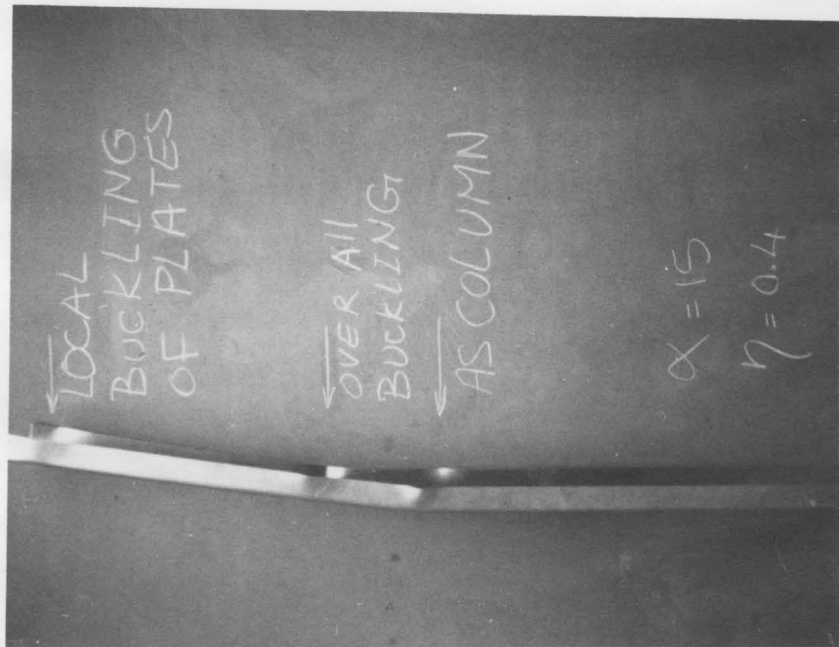 LOCAL
BUCKLING
OF PLATES
OVER All
BUCKLING
AS COLUMN
α = 15
η = 0.4